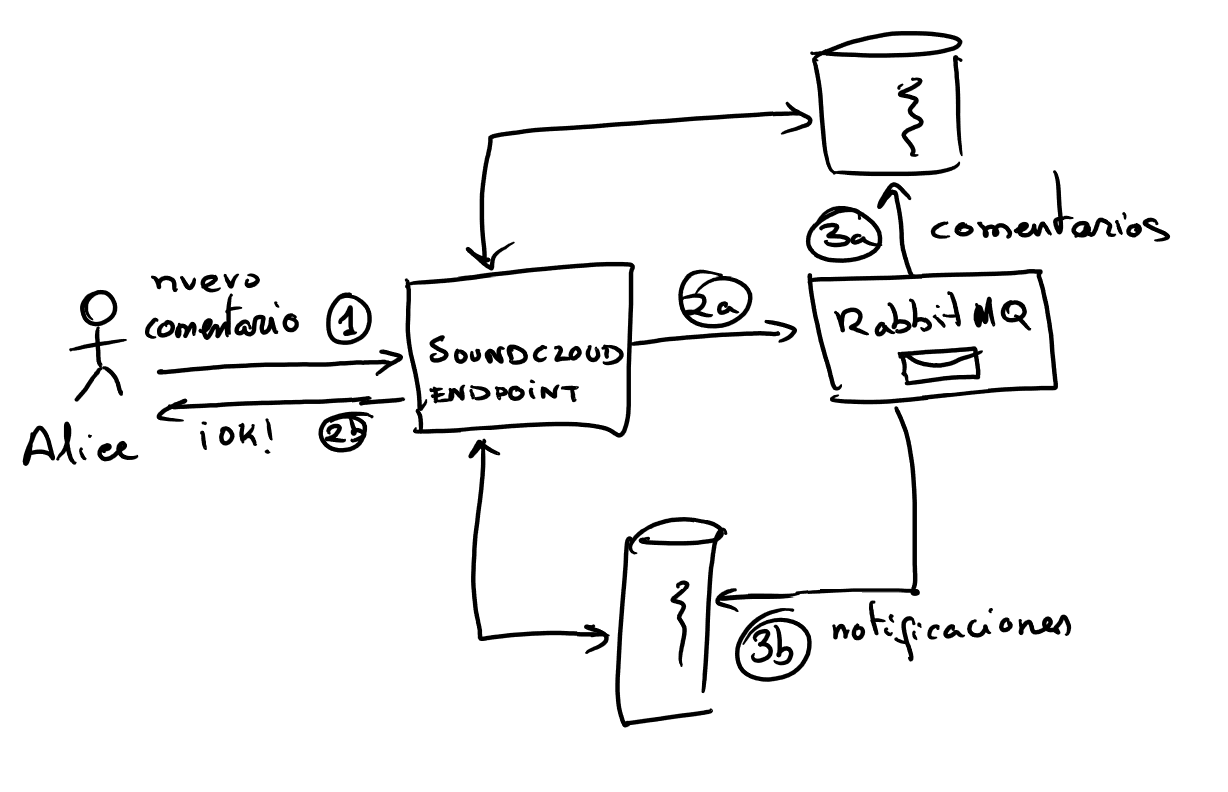 nuevo
comentario 1
Alice
¡OK! 2b
SOUNDCLOUD
ENDPOINT
2a
RabbitMQ
3a
comentarios
3b
notificaciones